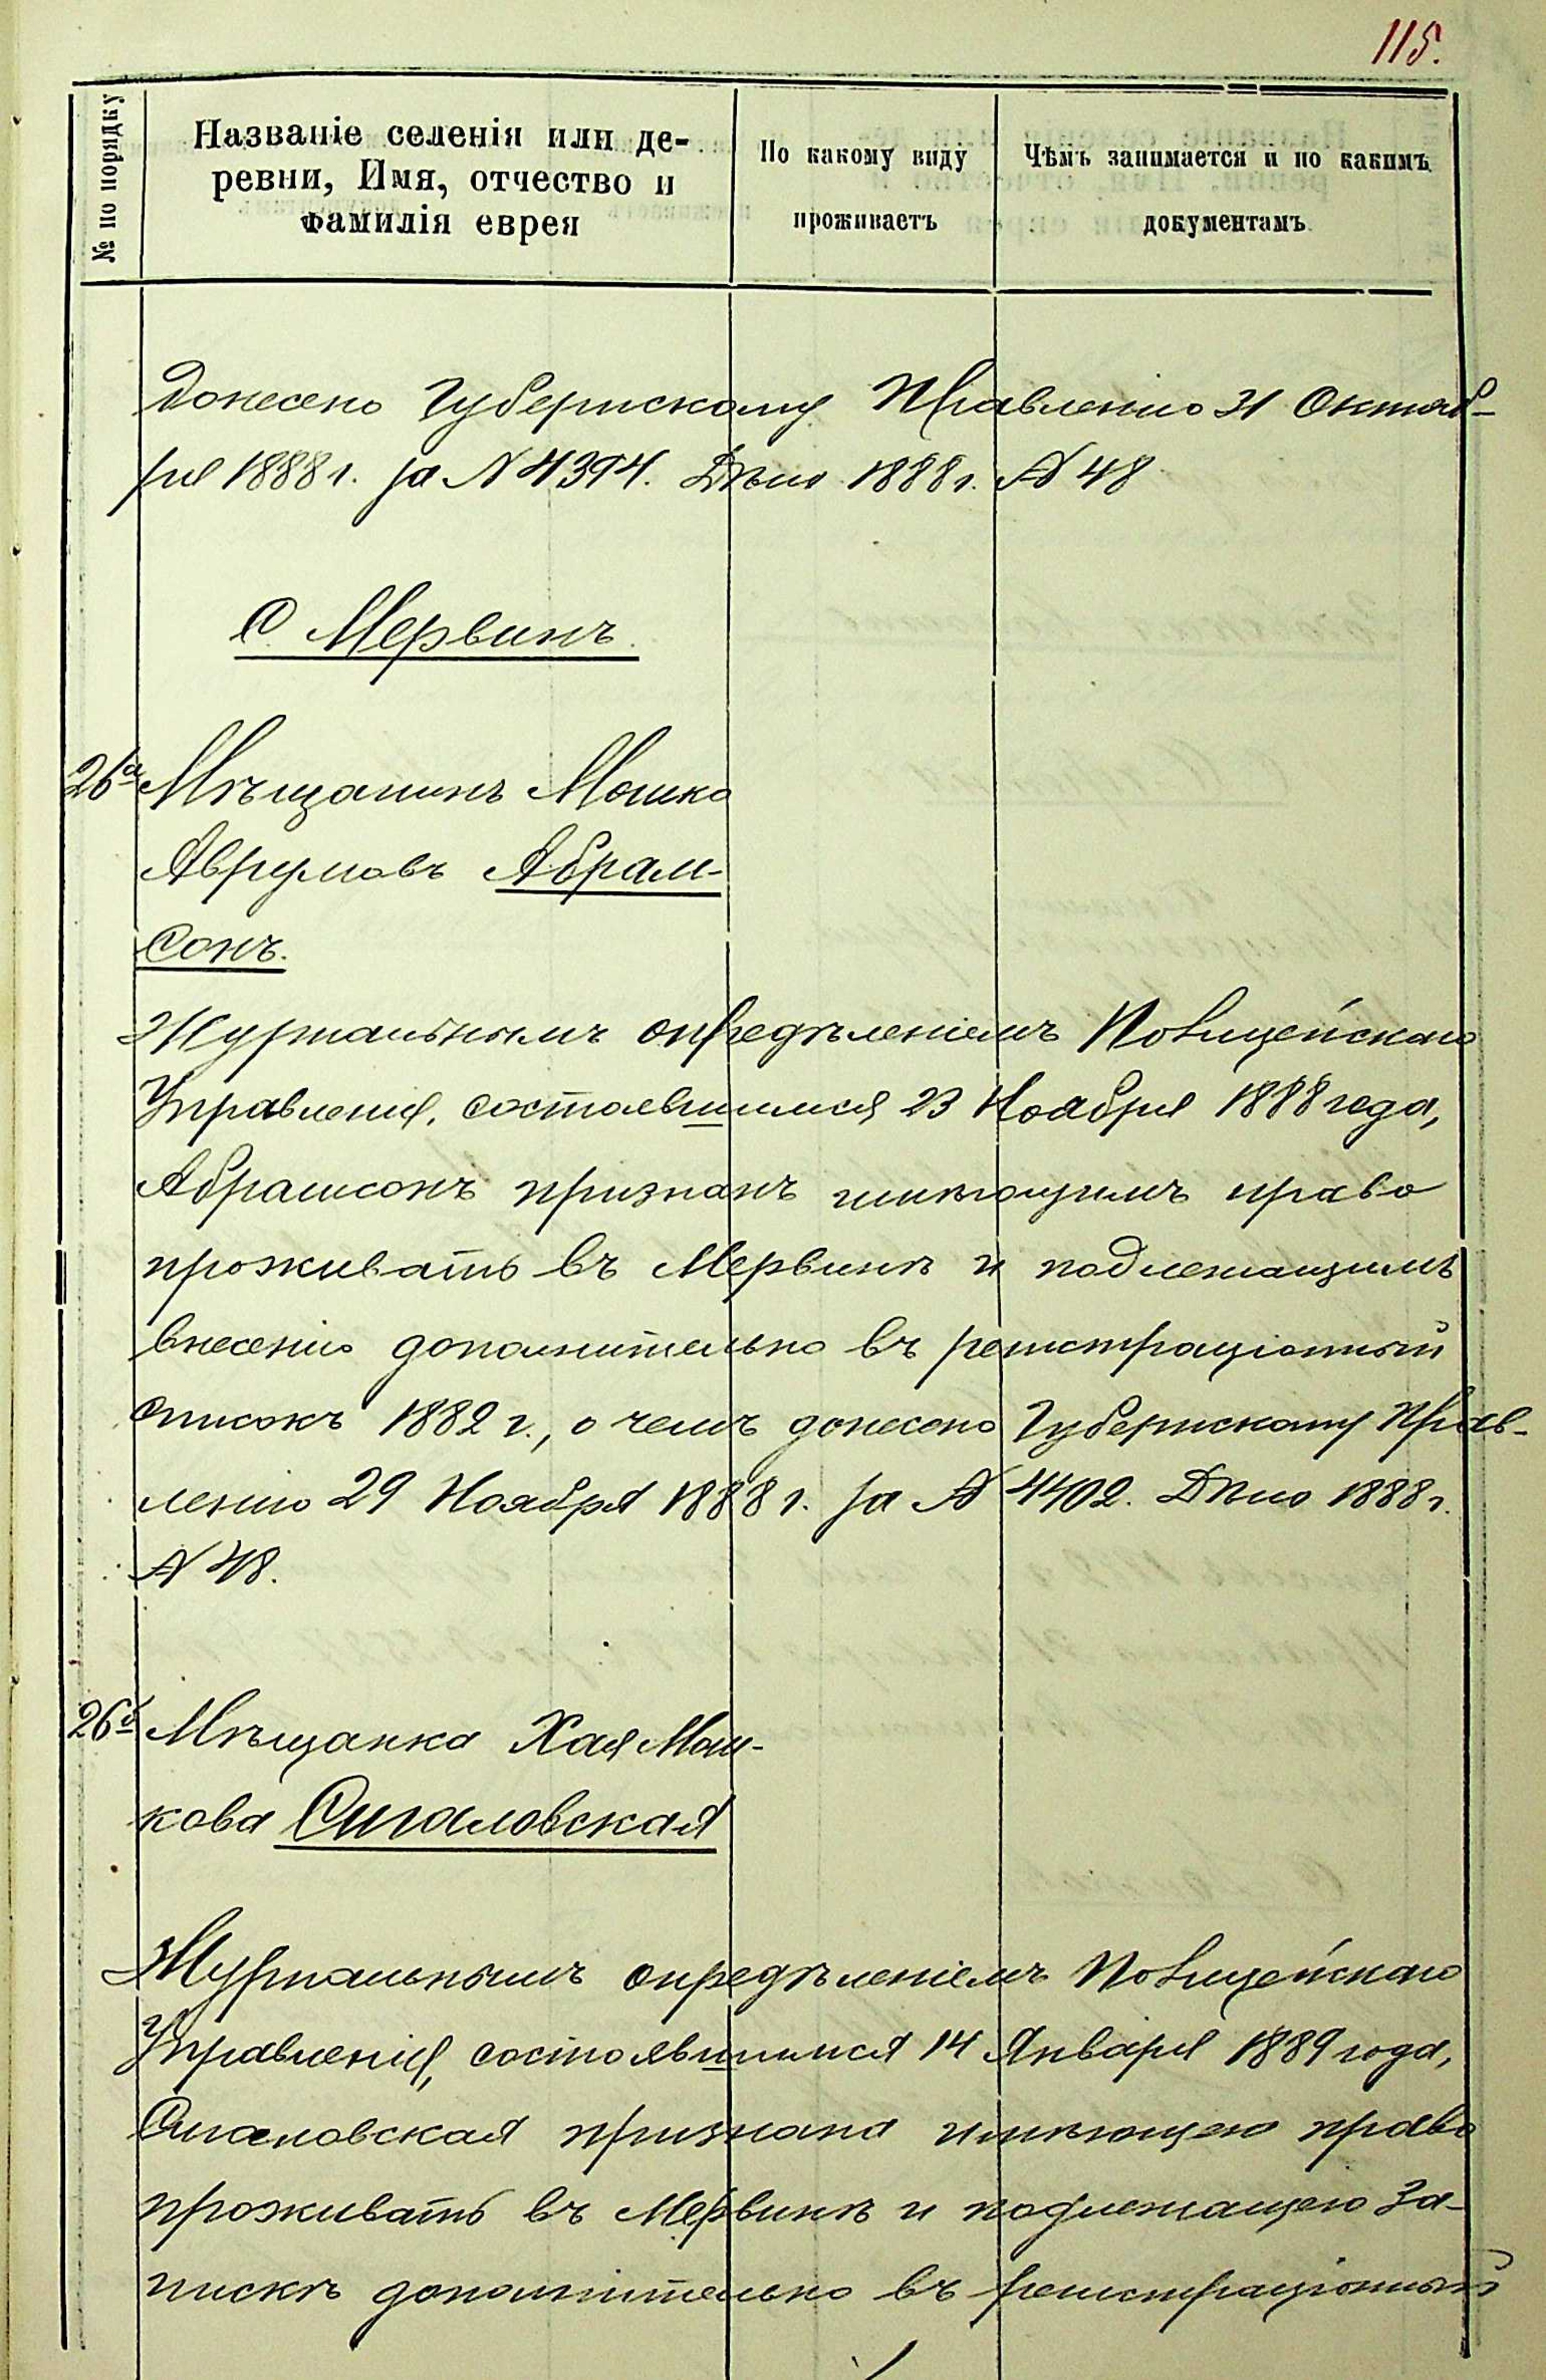 115.
№ по порядку
Названіе селенія или де-
ревни, Имя, отчество и
фамилія еврея
По какому виду
проживаетъ
Чѣмъ занимается и по какимъ
документамъ
Донесено Губернскому Правленію 31 Октяб-
ря 1888 г. за N 4394. Дѣло 1888 г. N 48
С Мервинъ.
26а Мѣщанинъ Мошко
Аврумовъ Абрам-
сонъ.
Журнальнымъ опредѣленіемъ Полицейскаго
Управленія, состоявшимся 23 Ноября 1888 года,
Абрамсонъ признанъ имѣющимъ право
проживать въ Мервинѣ и подлежащимъ
внесенію дополнительно въ регистраціонный
списокъ 1882 г., о чемъ донесено Губернскому Прав-
ленію 29 Ноября 1888 г. за N 4402. Дѣло 1888 г.
N 48.
26б Мѣщанка Хая Мош-
кова Сигаловская
Журнальнымъ опредѣленіемъ Полицейскаго
Управленія, состоявшимся 14 Января 1889 года,
Сигаловская признана имѣющею право
проживать въ Мервинѣ и подлежащею за-
пискѣ дополнительно въ регистраціонный